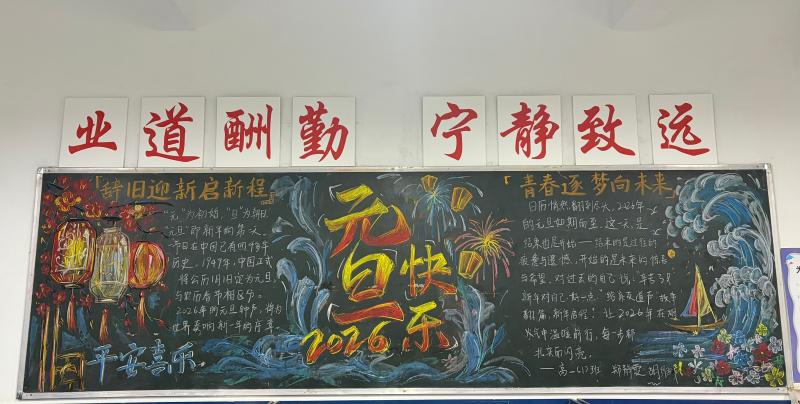 业道酬勤 宁静致远
「辞旧迎新启新程」
"元"为初始，"旦"为朝日
"元旦"即新年的第一天。
节日在中国已有四千多年
历史。1949年，中国正式
将公历1月1日定为元旦，
与农历春节相区分。
2026年的元旦钟声，将为
世界奏响新一年的序章。
平安喜乐
元旦
快乐
2026
「青春逐梦向未来」
日历悄然翻到尽头，2026年
的元旦如期而至。这一天，是
结束也是开始——结束的是过往的
疲惫与遗憾，开始的是未来的惊喜
与希望。对过去的自己说："辛苦了"
新年
翻篇，新年启程！让2026年在烟
火气中温暖前行，每一步都
扎实而闪亮。
——高一(1)班